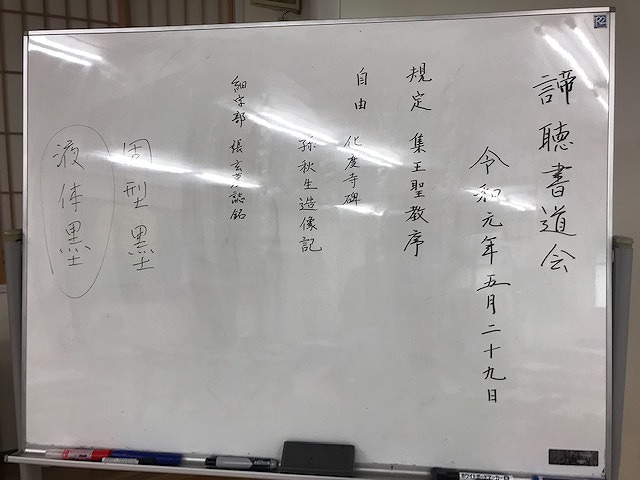 諦聴書道会
令和元年五月二十九日
規定 集王聖教序
自由 化度寺碑
孫秋生造像記
細字部 張玄墓誌銘
固型墨
液体墨